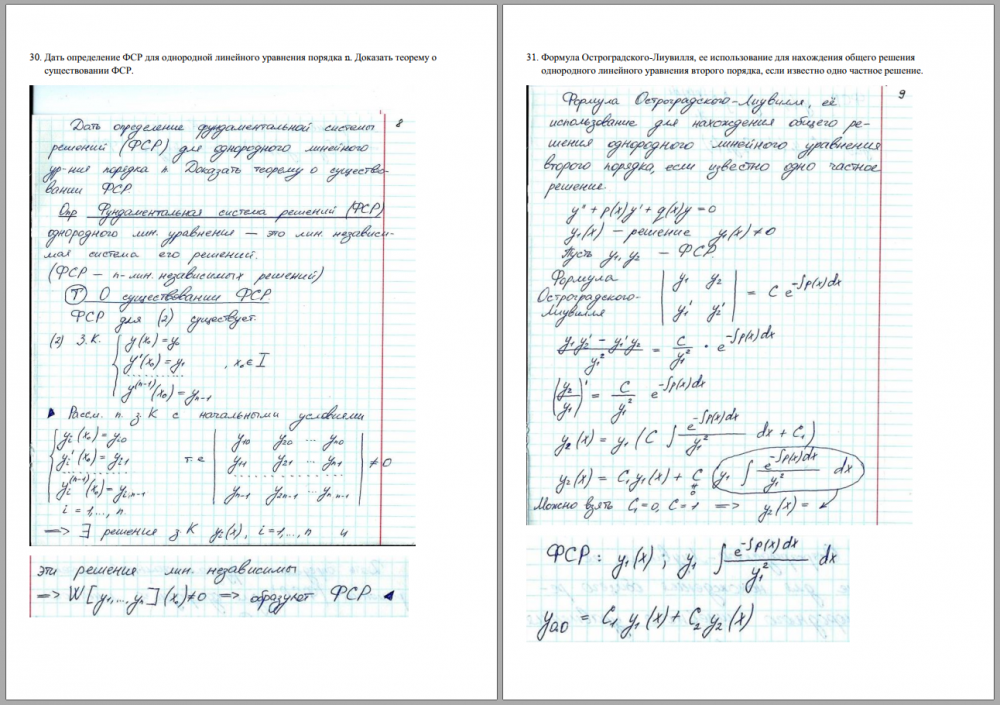 30. Дать определение ФСР для однородной линейного уравнения порядка n. Доказать теорему о
существовании ФСР.
8
Дать определение фундаментальной системы
решений (ФСР) для однородного линейного
ур-ния порядка n. Доказать теорему о существо-
вании ФСР
Опр Фундаментальная система решений (ФСР)
однородного лин. уравнения — это лин. независи-
мая система его решений.
(ФСР — n-лин. независимых решений)
(Т) О существовании ФСР
ФСР для (2) существует.
(2) З.К. { y(x₀) = y₀
y'(x₀) = y₁ , x₀ ∈ I
..........
y⁽ⁿ⁻¹⁾(x₀) = yₙ₋₁
Рассм. n з.К с начальными условиями
{ yᵢ(x₀) = yᵢ₀
yᵢ'(x₀) = yᵢ₁
..........
yᵢ⁽ⁿ⁻¹⁾(x₀) = yᵢ,ₙ₋₁
i = 1,..., n.
т.е | y₁₀ y₂₀ ... yₙ₀ |
| y₁₁ y₂₁ ... yₙ₁ | ≠ 0
..........
| yₙ₋₁ y₂ₙ₋₁ ... yₙ ₙ₋₁ |
=> ∃ решения з К yᵢ(x), i = 1,..., n и
эти решения лин. независимы
=> W[y₁,..., yₙ](x₀) ≠ 0 => образуют ФСР ◄
31. Формула Остроградского-Лиувилля, ее использование для нахождения общего решения
однородного линейного уравнения второго порядка, если известно одно частное решение.
9
Формула Остроградского-Лиувилля, её
использование для нахождения общего ре-
шения однородного линейного уравнения
второго порядка, если известно одно частное
решение.
y'' + p(x)y' + q(x)y = 0
y₁(x) — решение y₁(x) ≠ 0
Пусть y₁, y₂ — ФСР
Формула
Остроградского-
Лиувилля
| y₁ y₂ |
| y₁' y₂' | = C e^(-∫p(x)dx)
(y₁y₂' - y₁'y₂)/y₁² = C/y₁² · e^(-∫p(x)dx)
(y₂/y₁)' = C/y₁² e^(-∫p(x)dx)
y₂(x) = y₁ (C ∫ e^(-∫p(x)dx)/y₁² dx + C₁)
y₂(x) = C₁y₁(x) + C (y₁ ∫ e^(-∫p(x)dx)/y₁² dx)
≠
0
Можно взять C₁ = 0, C = 1 => y₂(x) =
ФСР: y₁(x) ; y₁ ∫ e^(-∫p(x)dx)/y₁² dx
= C₁ y₁(x) + C₂ y₂(x)